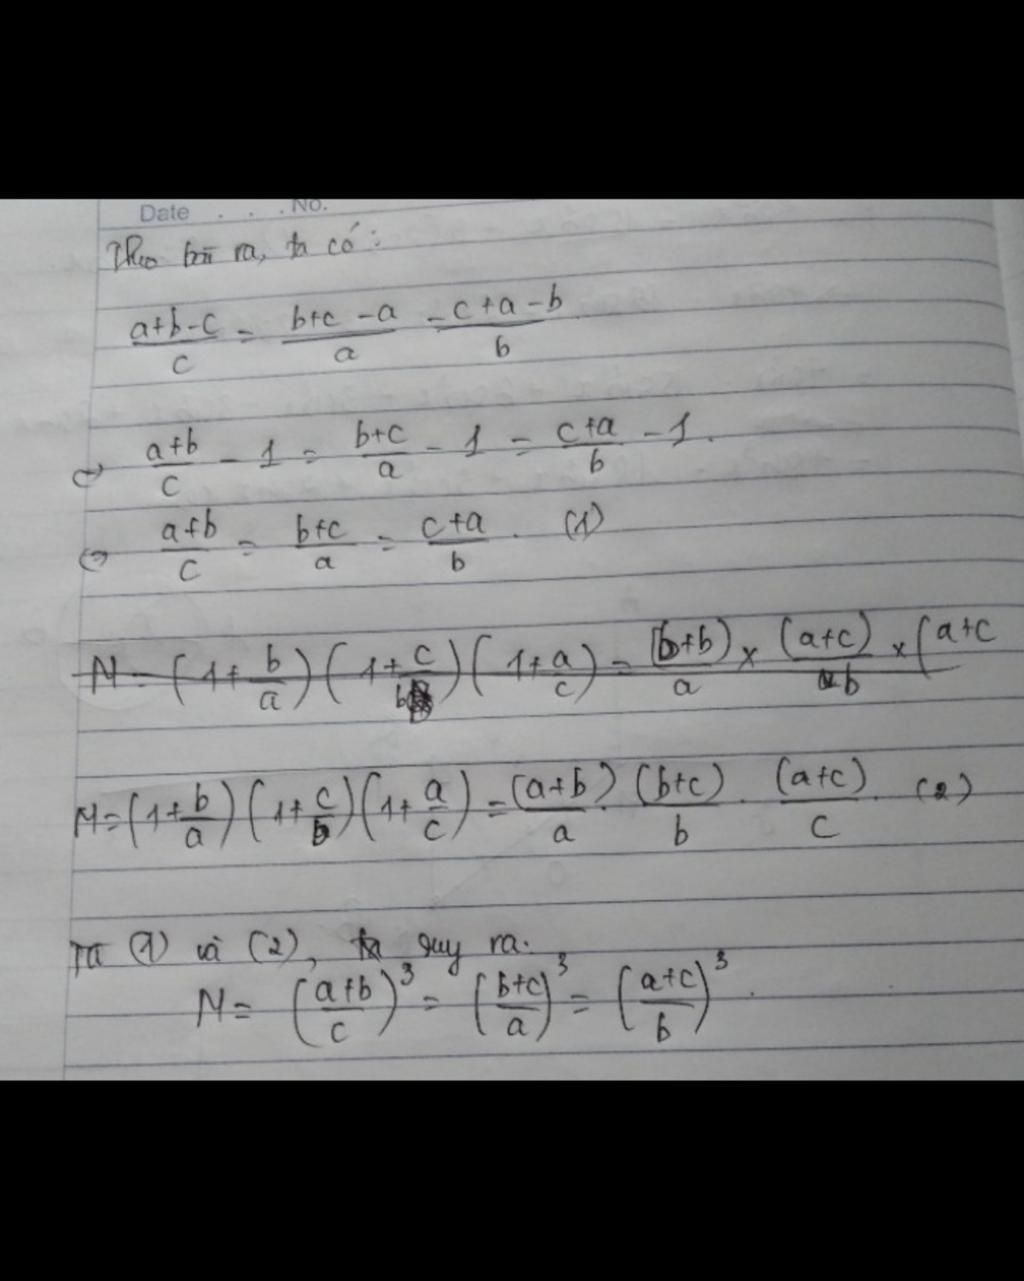 Date . . . No.
Theo bài ra, ta có:
(a+b-c)/c = (b+c-a)/a = (c+a-b)/b
⇔ (a+b)/c - 1 = (b+c)/a - 1 = (c+a)/b - 1.
⇔ (a+b)/c = (b+c)/a = (c+a)/b. (1)
M = (1+b/a)(1+c/b)(1+a/c) = (b+b)/a × (a+c)/b × (a+c
M = (1+b/a)(1+c/b)(1+a/c) = (a+b)/a . (b+c)/b . (a+c)/c. (2)
Từ (1) và (2), ta suy ra:
M = ((a+b)/c)³ = ((b+c)/a)³ = ((a+c)/b)³.